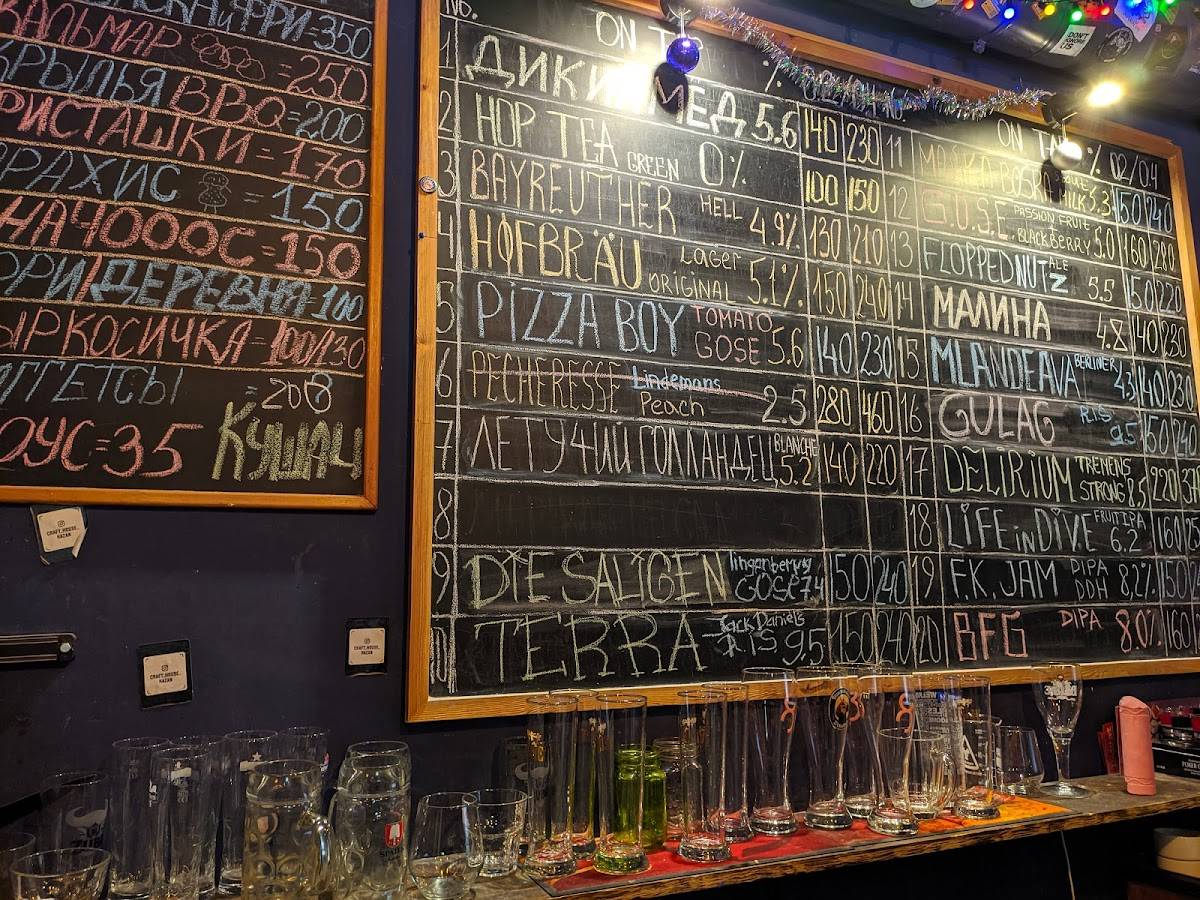 ФРИ=350
КАЛЬМАР =250
КРЫЛЬЯ BBQ=200
ФИСТАШКИ=170
АРАХИС =150
НАЧОООС=150
ФРИ/ДЕРЕВНЯ=100
СЫРКОСИЧКА=100/130
НАГГЕТСЫ =200
СОУС=35
No.
ON TAP %
1 ДИКИЙ МЁД 5.6 140 230
2 HOP TEA GREEN 0% 100 150
3 BAYREUTHER HELL 4.9% 130 210
4 HOFBRÄU Lager ORIGINAL 5.1% 150 240
5 PIZZA BOY TOMATO GOSE 5.6 140 230
6 PECHERESSE Lindemans Peach 2.5 280 460
7 ЛЕТУЧИЙ ГОЛЛАНДЕЦ BLANCHE 5.2 140 220
8
9 DIE SALIGEN lingonberry GOSE 7.4 150 240
10 TERRA Jack Daniels RIS 9.5 150 240
ON TAP % 02/0.4
11 MASKA BOGKA MILK 5.3 150 240
12 G.O.S.E PASSION FRUIT BLACKBERRY 5.0 160 280
13 FLOPPED NUTZ ALE 5.5 150 220
14 МАЛИНА 4.8 140 230
15 MLANDEAVA BERLINER 4.3 140 230
16 GULAG RIS 9.5 150 240
17 DELIRIUM TREMENS STRONG 8,5 220
18 LIFE in DIVE FRUIT IPA 6.2 160
19 F.K. JAM DIPA DDH 8,2% 150
20 BFG DIPA 8.0% 160
DON'T IGNORE US
CRAFT_HOUSE_KAZAN
CRAFT_HOUSE_KAZAN
CRAFT_HOUSE_KAZAN